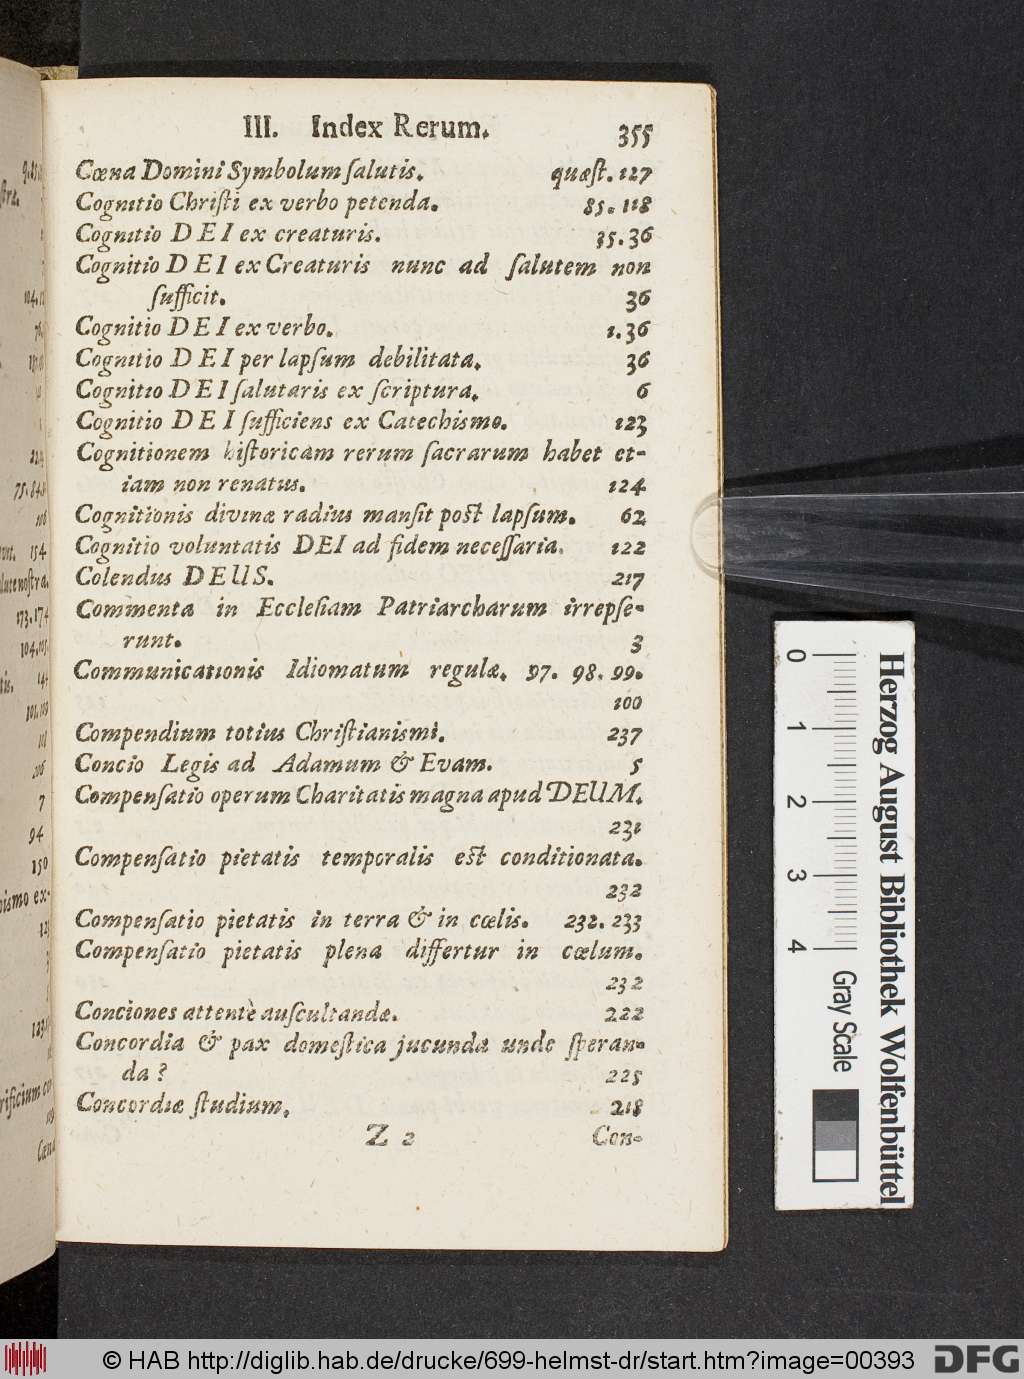 III. Index Rerum. 355
Cœna Domini Symbolum ſalutis. quæſt. 127
Cognitio Chriſti ex verbo petenda. 85. 118
Cognitio DEI ex creaturis. 35. 36
Cognitio DEI ex Creaturis nunc ad ſalutem non
ſufficit. 36
Cognitio DEI ex verbo. 1. 36
Cognitio DEI per lapſum debilitata. 36
Cognitio DEI ſalutaris ex ſcriptura. 6
Cognitio DEI ſufficiens ex Catechismo. 123
Cognitionem hiſtoricam rerum ſacrarum habet et-
iam non renatus. 124
Cognitionis divinæ radius manſit poſt lapſum. 62
Cognitio voluntatis DEI ad fidem neceſſaria. 122
Colendus DEUS. 217
Commenta in Eccleſiam Patriarcharum irrepſe-
runt. 3
Communicationis Idiomatum regulæ. 97. 98. 99.
100
Compendium totius Chriſtianismi. 237
Concio Legis ad Adamum & Evam. 5
Compenſatio operum Charitatis magna apud DEUM.
231
Compenſatio pietatis temporalis eſt conditionata.
232
Compenſatio pietatis in terra & in cœlis. 232. 233
Compenſatio pietatis plena differtur in cœlum.
232
Conciones attentè auſcultandæ. 222
Concordia & pax domeſtica jucunda unde ſperan-
da? 225
Concordiæ ſtudium. 218
Z 2 Con-
104.
154
173. 174
7
94
150
Herzog August Bibliothek Wolfenbüttel
0 1 2 3 4
Gray Scale
© HAB http://diglib.hab.de/drucke/699-helmst-dr/start.htm?image=00393
DFG